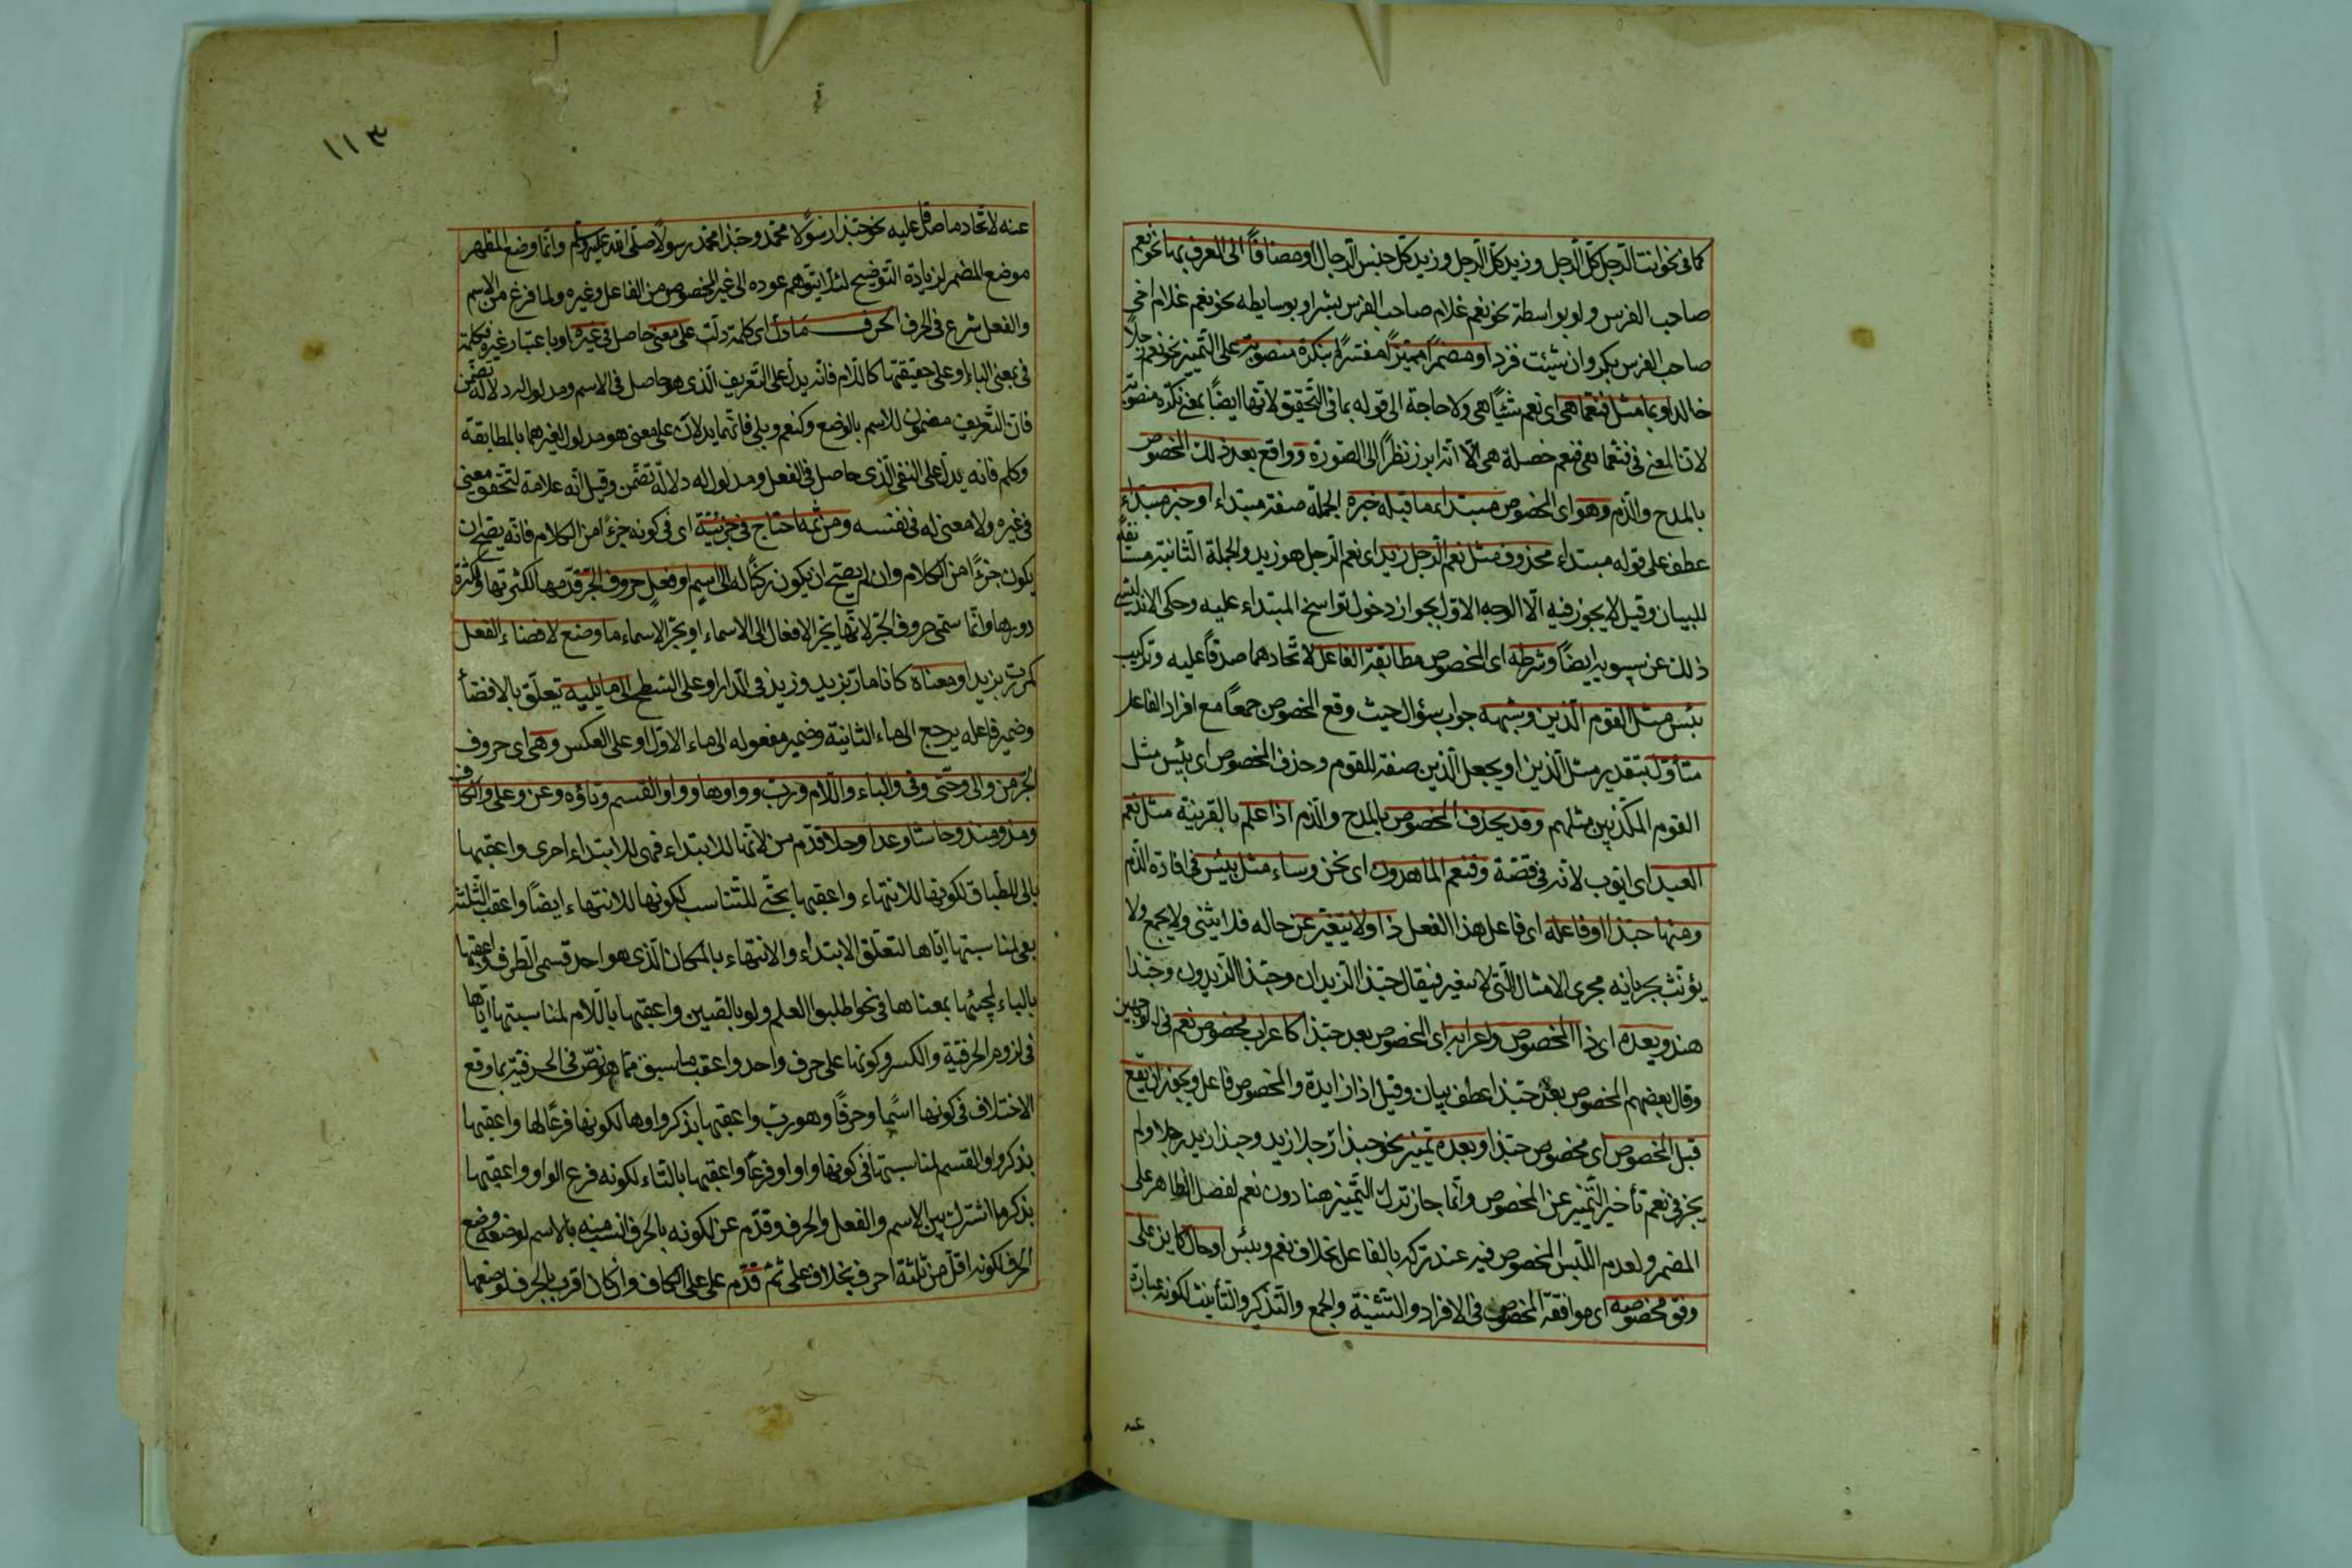 كما في نحو انت الرجل كل الرجل وزيد كل الرجل وزيد كل جنس الرجال او مضافا الى المعرف بها نحو نعم
صاحب الفرس ولو بواسطة نحو نعم غلام صاحب الفرس بشر او بوسايطه نحو نعم غلام اخي
صاحب الفرس بكر وان شئت فزد او مضمرا مميزا مفسرا بنكرة منصوبة على التمييز نحو نعم رجلا
خالد او بما مثل فنعما هي اي نعم شيئا هي ولا حاجة الى قوله بما في التحقيق لانها ايضا بمعنى نكرة منصوبة
لان المعنى في فنعما هي فنعم خصلة هي الا انه ابرز نظرا الى الصورة وواقع بعد ذلك المخصوص
بالمدح والذم وهو اي المخصوص مبتداء ما قبله خبره الجملة صفة مبتداء او خبر مبتداء
عطف على قوله مبتداء محذوف مثل نعم الرجل زيد اي نعم الرجل هو زيد والجملة الثانية مستانفة
للبيان وقيل لا يجوز فيه الا الوجه الاول بجواز دخول نواسخ المبتداء عليه وحكى الاندلسي
ذلك عن سيبويه ايضا وشرطه اي المخصوص مطابقة الفاعل لاتحادهما صدقا عليه وتركيب
بئس مثل القوم الذين وشبهه جواب سؤال حيث وقع المخصوص جمعا مع افراد الفاعل
متأول بتقدير مثل الذين او بجعل الذين صفة للقوم وحذف المخصوص اي بئس مثل
القوم المكذبين مثلهم وقد يحذف المخصوص بالمدح والذم اذا علم بالقرينة مثل نعم
العبد اي ايوب لانه في قصة وفنعم الماهدون اي نحن وساء مثل بئس في افادة الذم
ومنها حبذا وفاعله اي فاعل هذا الفعل ذا ولا يتغير عن حاله فلا يثنى ولا يجمع ولا
يؤنث بجريانه مجرى الامثال التي لا تتغير فيقال حبذا الزيدان وحبذا الزيدون وحبذا
هند وبعده اي ذا المخصوص واعرابه اي المخصوص بعد حبذا كاعراب مخصوص نعم في الوجهين
وقال بعضهم المخصوص بعد حبذا عطف بيان وقيل اذا زايدة والمخصوص فاعل ويجوز ان يقع
قبل المخصوص اي مخصوص حبذا وبعده تمييز نحو حبذا رجلا زيد وحبذا زيد رجلا ولم
يجز في نعم تأخير التمييز عن المخصوص وانما جاز ترك التمييز هنا دون نعم لفضل الظاهر على
المضمر ولعدم اللبس المخصوص فيه عند تركه بالفاعل بخلاف نعم وبئس او حال كاين على
وفق مخصوصه اي موافقة المخصوص في الافراد والتثنية والجمع والتذكير والتأنيث لكونه عبارة
عنه
١١٣
عنه لاتحاد ما صدق عليه نحو حبذا رسولا محمد وحبذا محمد رسولا صلى الله عليه وسلم وانما وضع المظهر
موضع المضمر لزيادة التوضيح لئلا يتوهم عوده الى غير المخصوص من الفاعل وغيره ولما فرغ من الاسم
والفعل شرع في الحرف الحرف ما دل اي كلمة دلت على معنى حاصل في غيره او باعتبار غيره فكلمة
في بمعنى الباء او على حقيقتها كاللام فانه يدل على التعريف الذي هو حاصل في الاسم ومدلول له دلالة تضمن
فان التعريف مضمون للاسم بالوضع وكنعم وبلى فانهما يدلان على معنى هو مدلول لغيرهما بالمطابقة
وكلم فانه يدل على النفي الذي حاصل في الفعل ومدلول له دلالة تضمن وقيل انه علامة لتحقق معنى
في غيره ولا معنى له في نفسه ومن ثمه احتاج في جزئيته اي في كونه جزءا من الكلام فانه يصح ان
يكون جزءا من الكلام وان لم يصح ان يكون ركنا له الى اسم او فعل حروف الجر قدمها لكثرتها وكثرة
دورها وانما سمى حروف الجر لانها تجر الافعال الى الاسماء او تجر الاسماء ما وضع لافضاء الفعل
كمررت بزيد او معناه كانا مار بزيد وزيد في الدار او على السطح الى ما يليه تعلق بالافضاء
وضمير فاعله يرجع الى ماء الثانية وضمير مفعوله الى ماء الاول او على العكس وهي اي حروف
الجر من والى وحتى وفي والباء واللام ورب وواوها وواو القسم وتاؤه وعن وعلى والكاف
ومذ ومنذ وحاشا وعدا وخلا قدم من لانها للابتداء فهي للابتداء احرى واعقبها
بالى للطباق لكونها للانتهاء واعقبها بحتى للتناسب لكونها للانتهاء ايضا واعقب الثلثة
بفي لمناسبتها اياها لتعلق الابتداء والانتهاء بالمكان الذي هو احد قسمي الظرف واعقبها
بالباء لمجيئها بمعناها في نحو اطلبوا العلم ولو بالصين واعقبها باللام لمناسبتها اياها
في لزوم الحرفية والكسر وكونها على حرف واحد واعقب ما سبق مما هو نص في الحرفية بما وقع
الاختلاف في كونها اسما وحرفا وهو رب واعقبها بذكر واوها لكونها فرعا لها واعقبها
بذكر واو القسم لمناسبتها في كونها واوا وفرعا واعقبها بالتاء لكونه فرع الواو واعقبها
بذكر ما اشترك بين الاسم والفعل والحرف وقدم عن لكونه بالحرف انسب منه بالاسم لوضعه وضع
الحرف لكونه اقل من ثلثة احرف بخلاف على ثم قدم على على الكاف وان كان اقرب بالحرف لوضعها